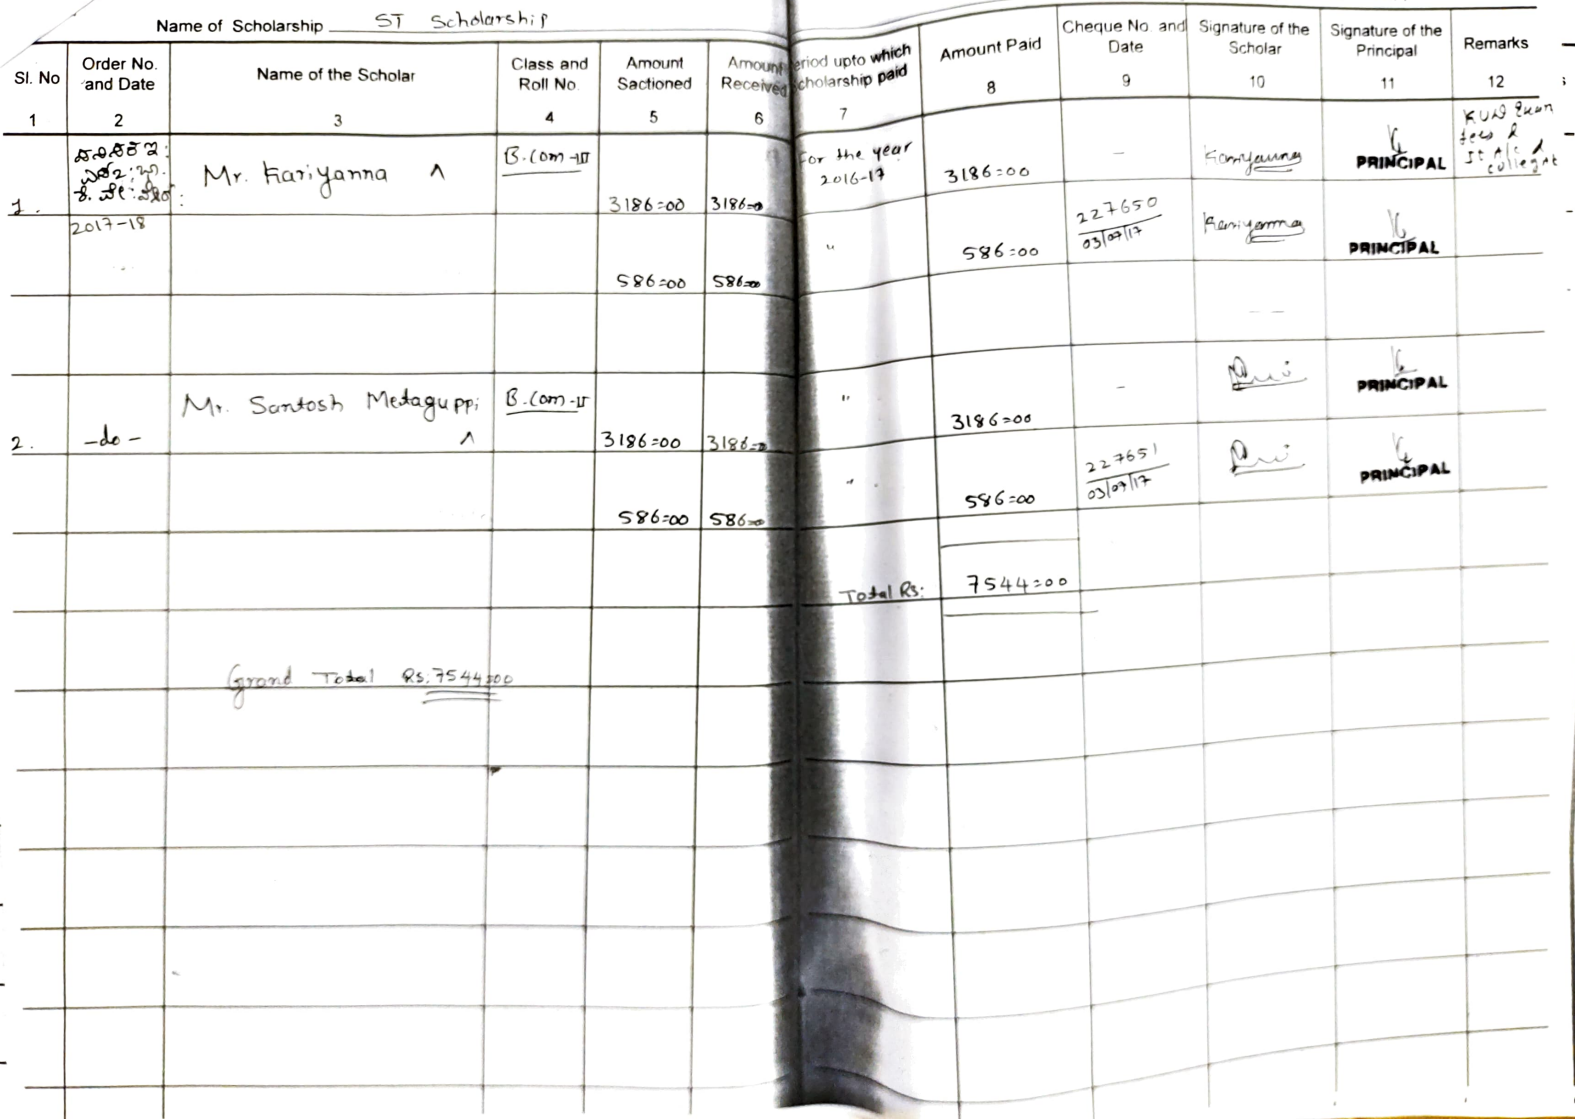 Name of Scholarship ST Scholarship
Sl. No
Order No. and Date
Name of the Scholar
Class and Roll No.
Amount Sactioned
Amount Received
eriod upto which cholarship paid
Amount Paid
Cheque No. and Date
Signature of the Scholar
Signature of the Principal
Remarks
1 2 3 4 5 6 7 8 9 10 11 12
1. Mr. Kariyanna B.Com-III 3186=00 3186=00 For the year 2016-17 3186=00 - Kariyanna PRINCIPAL KUD Exam fees &
2017-18 586=00 586=00 " 586=00 227650 03/07/17 Kariyanna PRINCIPAL
2. -do- Mr. Santosh Metaguppi B.Com-II 3186=00 3186=00 " 3186=00 - PRINCIPAL
586=00 586=00 " 586=00 227651 03/07/17 PRINCIPAL
Total Rs: 7544=00
Grand Total Rs: 7544=00